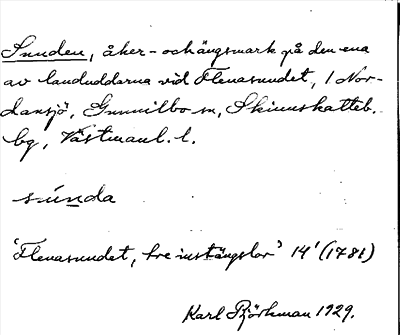 Sunden, åker- och ängsmark på den ena
av landuddarna vid Flenasundet, i Nor-
dansjö, Gunnilbo sn, Skinnskatteb.
bg, Västmanl. l.
súnda
'Flenasundet, tre instängslor' 14' (1781)
Karl Björkman 1929.